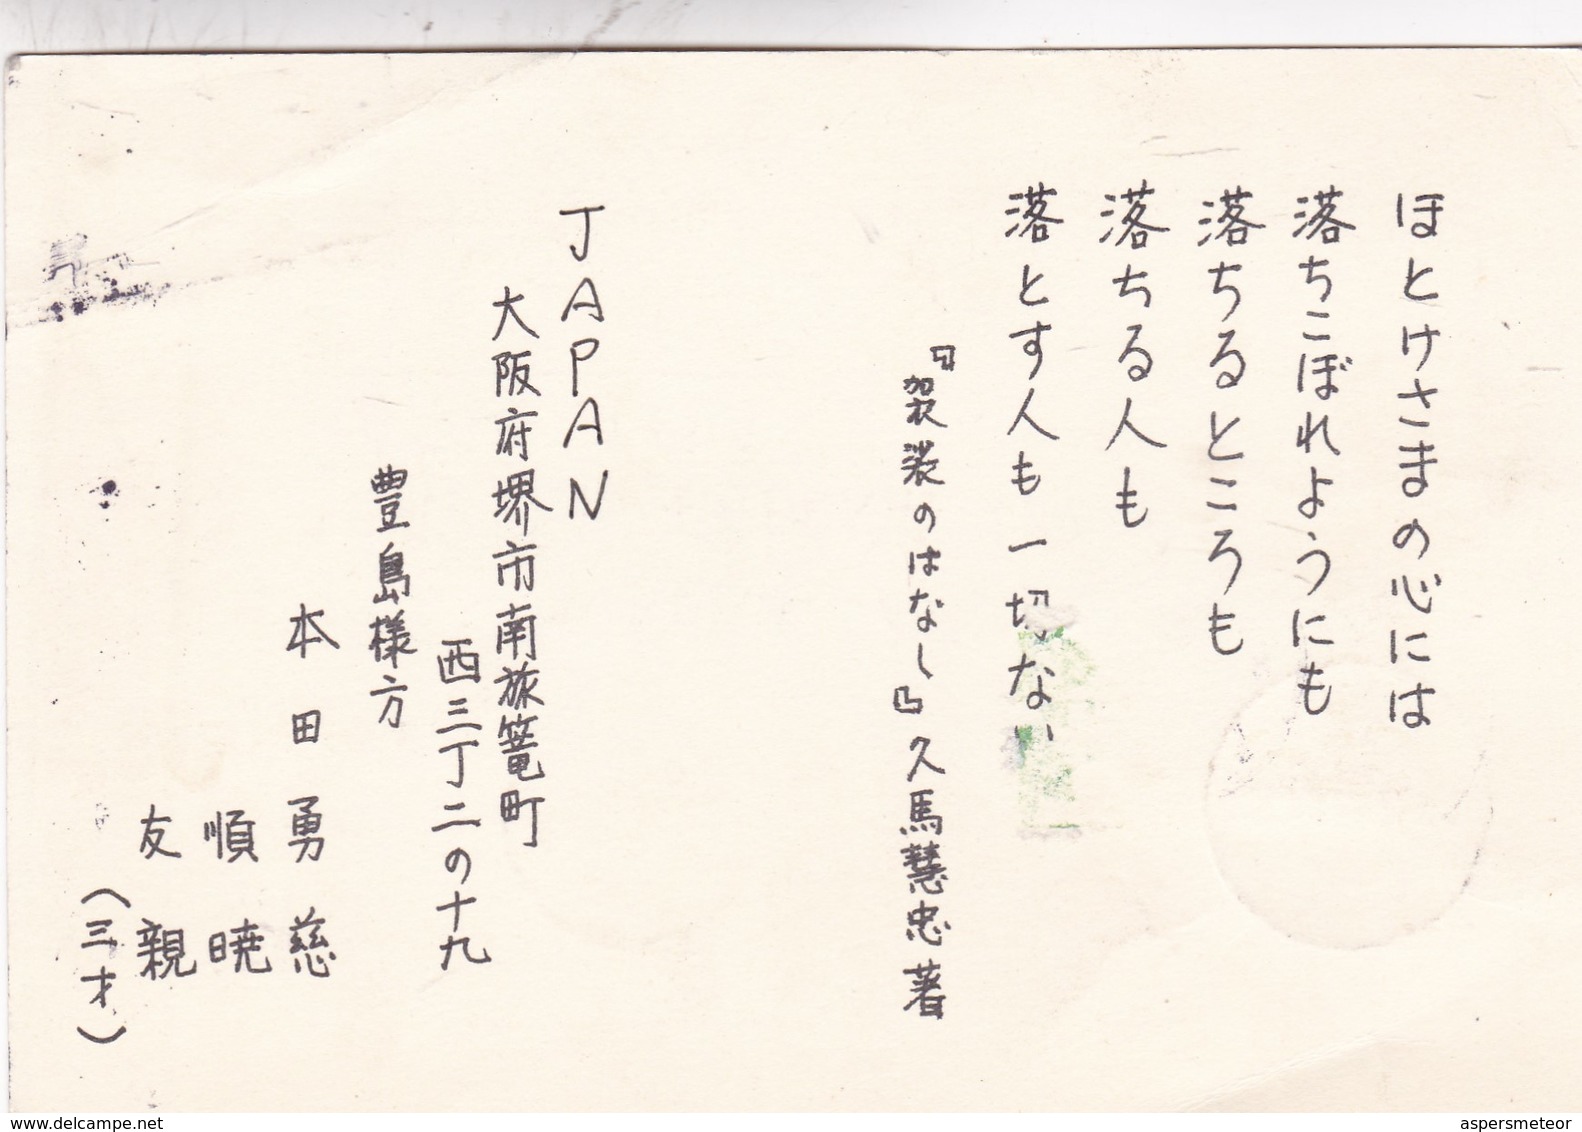 ほとけさまの心には
落ちこぼれようにも
落ちるところも
落ちる人も
落とす人も一切ない
『袈裟のはなし』久馬慧忠著
JAPAN
大阪府堺市南旅篭町
西三丁二の十九
豊島様方
本田勇慈
順暁
友親
(三才)
www.delcampe.net
aspersmeteor